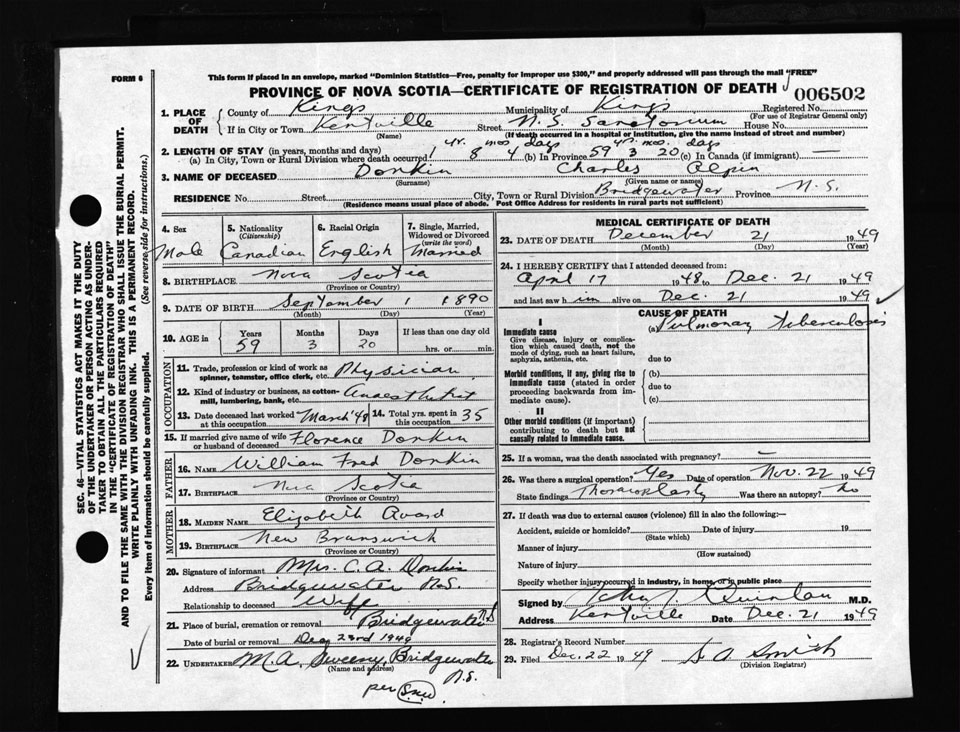 FORM 6
This form if placed in an envelope, marked "Dominion Statistics—Free, penalty for improper use $300," and properly addressed will pass through the mail "FREE"
PROVINCE OF NOVA SCOTIA—CERTIFICATE OF REGISTRATION OF DEATH
006502
1. PLACE OF DEATH
County of Kings Municipality of Kings Registered No.
(For use of Registrar General only)
If in City or Town Kentville Street N. S. Sanatorium House No.
(Name) (If death occurred in a hospital or institution, give the name instead of street and number)
2. LENGTH OF STAY (in years, months and days)
yr. mos days yrs. mos. days
(a) In City, Town or Rural Division where death occurred 1 8 4 (b) In Province 59 3 20 (c) In Canada (if immigrant) —
3. NAME OF DECEASED Donkin Charles Alpin
(Surname) (Given name or names)
RESIDENCE No. Street City, Town or Rural Division Bridgewater Province N. S.
(Residence means usual place of abode. Post Office Address for residents in rural parts not sufficient)
4. Sex
Male
5. Nationality
(Citizenship)
Canadian
6. Racial Origin
English
7. Single, Married, Widowed or Divorced
(write the word)
Married
8. BIRTHPLACE Nova Scotia
(Province or Country)
9. DATE OF BIRTH September 1 1890
(Month) (Day) (Year)
10. AGE in
Years Months Days If less than one day old
59 3 20 hrs. or min.
OCCUPATION
11. Trade, profession or kind of work as
spinner, teamster, office clerk, etc. Physician
12. Kind of industry or business, as cotton-
mill, lumbering, bank, etc. Anaesthetist
13. Date deceased last worked
at this occupation March '48
14. Total yrs. spent in
this occupation 35
15. If married give name of wife
or husband of deceased Florence Donkin
FATHER
16. NAME William Fred Donkin
17. BIRTHPLACE Nova Scotia
(Province or Country)
MOTHER
18. MAIDEN NAME Elizabeth Avard
19. BIRTHPLACE New Brunswick
(Province or Country)
20. Signature of informant Mrs. C. A. Donkin
Address Bridgewater N.S.
Relationship to deceased Wife
21. Place of burial, cremation or removal Bridgewater N S
Date of burial or removal Dec 23rd 1949
22. UNDERTAKER M. A. Sweeny, Bridgewater
(Name and address)
N. S.
per
MEDICAL CERTIFICATE OF DEATH
23. DATE OF DEATH December 21 1949
(Month) (Day) (Year)
24. I HEREBY CERTIFY that I attended deceased from:
April 17 1948 to Dec. 21 1949
and last saw him alive on Dec. 21 1949
CAUSE OF DEATH
I
Immediate cause
Give disease, injury or complication which caused death, not the mode of dying, such as heart failure, asphyxia, asthenia, etc.
(a) Pulmonary Tuberculosis
due to
Morbid conditions, if any, giving rise to immediate cause (stated in order proceeding backwards from immediate cause).
(b)
due to
(c)
II
Other morbid conditions (if important) contributing to death but not causally related to immediate cause.
25. If a woman, was the death associated with pregnancy? —
26. Was there a surgical operation? Yes Date of operation Nov. 22 1949
State findings Thoracoplasty Was there an autopsy? No
27. If death was due to external causes (violence) fill in also the following:—
Accident, suicide or homicide? Date of injury 19
(State which)
Manner of injury
(How sustained)
Nature of injury
Specify whether injury occurred in industry, in home, or in public place
Signed by John J. Quinlan M.D.
Address Kentville Date Dec. 21 1949
28. Registrar's Record Number
29. Filed Dec. 22 1949 S A Smith
(Division Registrar)
SEC. 46—VITAL STATISTICS ACT MAKES IT THE DUTY
OF THE UNDERTAKER OR PERSON ACTING AS UNDER-
TAKER TO OBTAIN ALL THE PARTICULARS REQUIRED
IN THE "CERTIFICATE OF REGISTRATION OF DEATH"
AND TO FILE THE SAME WITH THE DIVISION REGISTRAR WHO SHALL ISSUE THE BURIAL PERMIT.
WRITE PLAINLY WITH UNFADING INK. THIS IS A PERMANENT RECORD.
Every item of information should be carefully supplied. (See reverse side for instructions.)